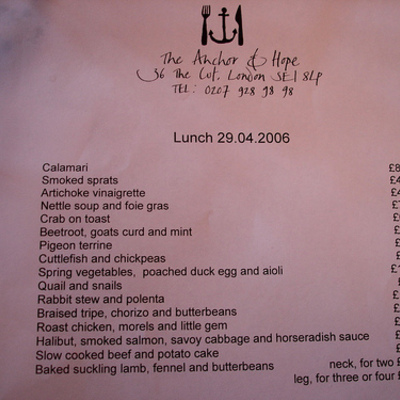 The Anchor & Hope
36 The Cut. London SE1 8LP
TEL: 0207 928 98 98
Lunch 29.04.2006
Calamari £8
Smoked sprats £4
Artichoke vinaigrette £4
Nettle soup and foie gras £
Crab on toast £
Beetroot, goats curd and mint £
Pigeon terrine £
Cuttlefish and chickpeas £
Spring vegetables, poached duck egg and aioli £1
Quail and snails £
Rabbit stew and polenta £
Braised tripe, chorizo and butterbeans £
Roast chicken, morels and little gem £
Halibut, smoked salmon, savoy cabbage and horseradish sauce £
Slow cooked beef and potato cake £
Baked suckling lamb, fennel and butterbeans neck, for two £
leg, for three or four £